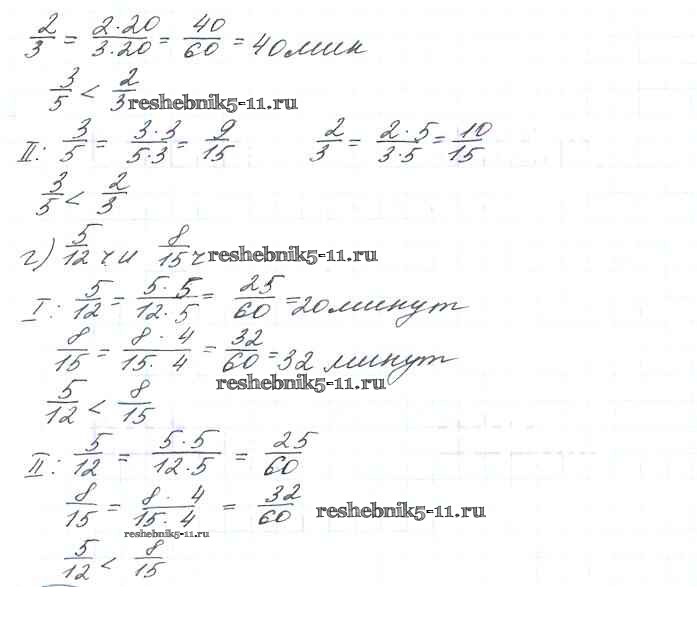 2/3 = 2·20/3·20 = 40/60 = 40 мин
3/5 < 2/3 reshebnik5-11.ru
II: 3/5 = 3·3/5·3 = 9/15 2/3 = 2·5/3·5 = 10/15
3/5 < 2/3
г) 5/12 ч и 8/15 ч reshebnik5-11.ru
I: 5/12 = 5·5/12·5 = 25/60 = 20 минут
8/15 = 8·4/15·4 = 32/60 = 32 минут
reshebnik5-11.ru
5/12 < 8/15
II: 5/12 = 5·5/12·5 = 25/60
8/15 = 8·4/15·4 = 32/60 reshebnik5-11.ru
reshebnik5-11.ru
5/12 < 8/15